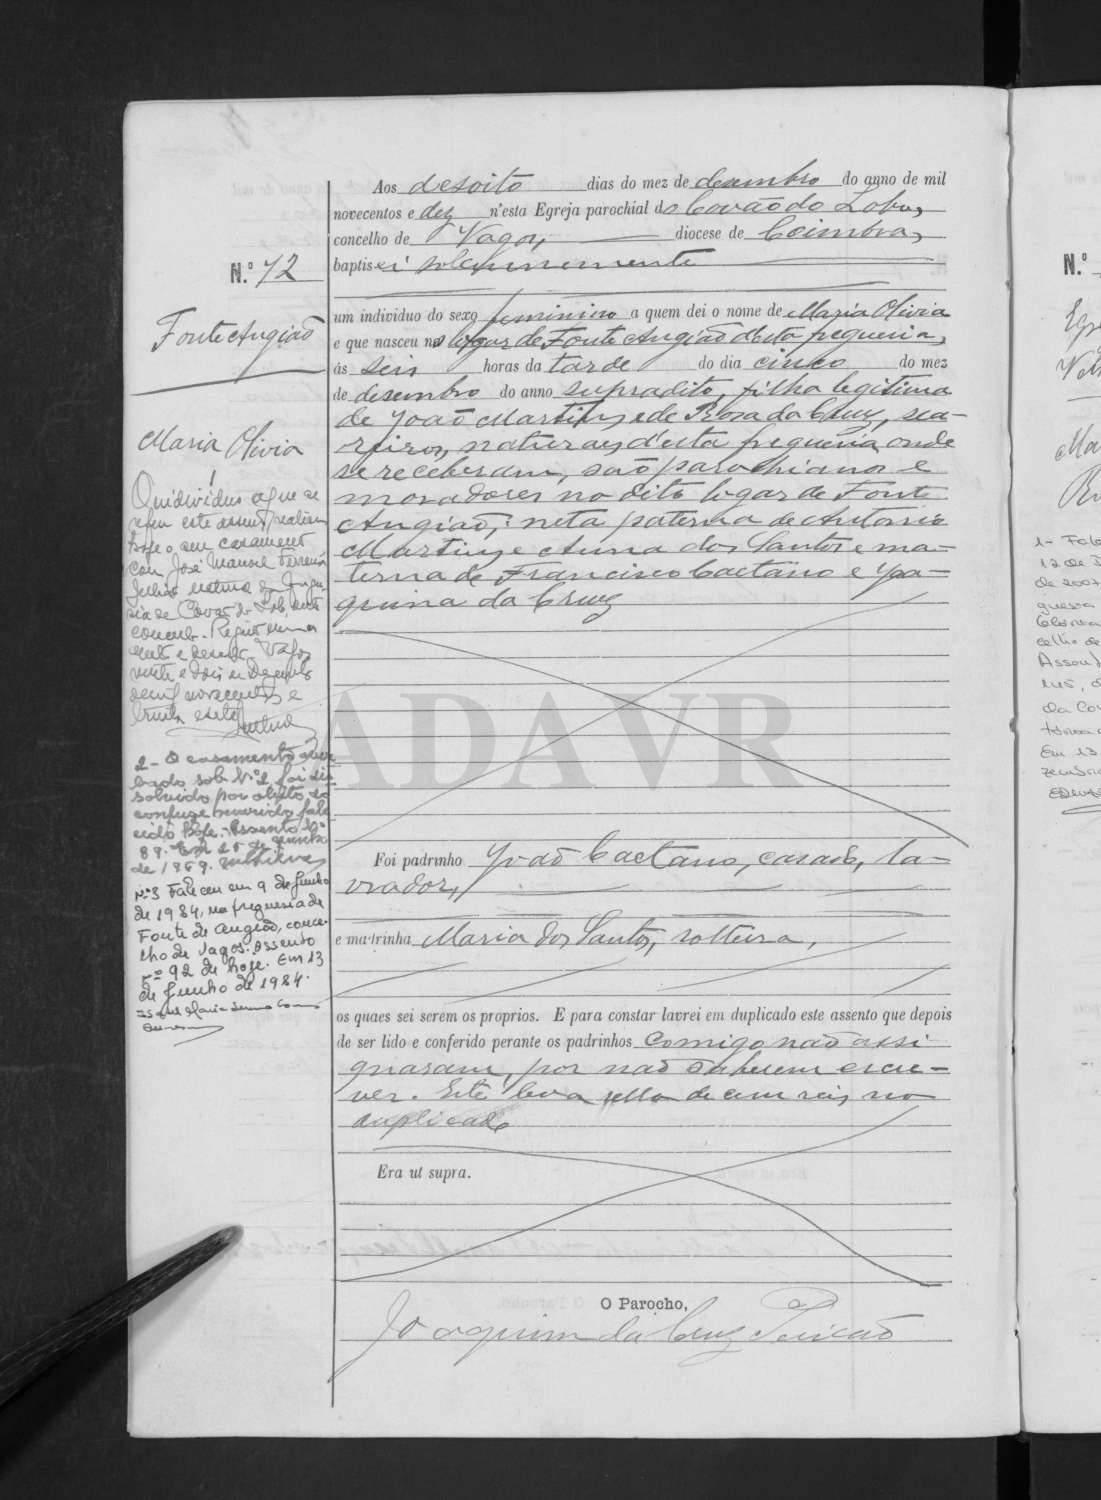 Aos desoito dias do mez de dezembro do anno de mil
novecentos e dez n'esta Egreja parochial do Covão do Lobo,
concelho de Vagos, diocese de Coimbra,
baptisei solemnemente
N.º 72
um individuo do sexo feminino a quem dei o nome de Maria Olivia
Fonte Angião
e que nasceu no logar de Fonte Angião d'esta freguesia,
ás seis horas da tarde do dia cinco do mez
de desembro do anno supradito, filha legitima
de João Martins e de Rosa da Cruz, sea-
reiros, naturaes d'esta freguesia, onde
se receberam, são parochianos e
moradores no dito logar de Fonte
Angião; neta paterna de Antonio
Martins e Anna dos Santos e ma-
terna de Francisco Caetano e Joa-
quina da Cruz
Maria Olivia
O individuo a que se
refere este assento realisou
hoje o seu casamento
com José Manuel Ferreira
natural da fregue
sia de Covão do Lobo, deste
concelho. Registo numero
cento e Vagos
vinte e dois de Dezembro
de mil novecentos e
trinta e sete
2 - O casamento aver
bado sob Nº 1 foi dis
solvido por obito do
conjuge marido fale
cido hoje. Assento Nº
89. Em 25 de
de 1969.
Nº 3 Faleceu em 9 de Junho
de 1984, na freguesia de
Fonte de Angeão, conce-
lho de Vagos. Assento
nº 92 de hoje. Em 13
de Junho de 1984.
ADAVR
Foi padrinho João Caetano, casado, la-
vrador,
e madrinha Maria dos Santos, solteira,
os quaes sei serem os proprios. E para constar lavrei em duplicado este assento que depois
de ser lido e conferido perante os padrinhos comigo não assi
gnaram, por não saberem escre-
ver. Este leva sello de cem reis no
duplicado
Era ut supra.
O Parocho,
Joaquim da Cruz
N.º